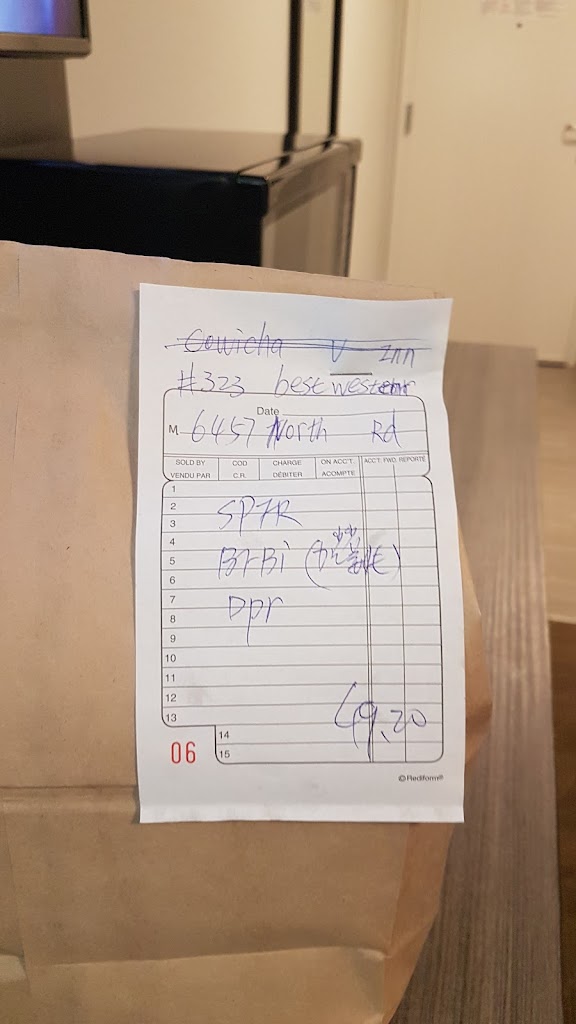 Cowicha V Inn
#323 best western
Date
M 6457 North Rd
SOLD BY COD CHARGE ON ACC'T. ACC'T. FWD. REPORTE
VENDU PAR C.R. DÉBITER ACOMPTE
1
2
3 SPFR
4
5 BrBi
6
7 Dpr
8
9
10
11
12
13 49.20
06 14
15
©Rediform®